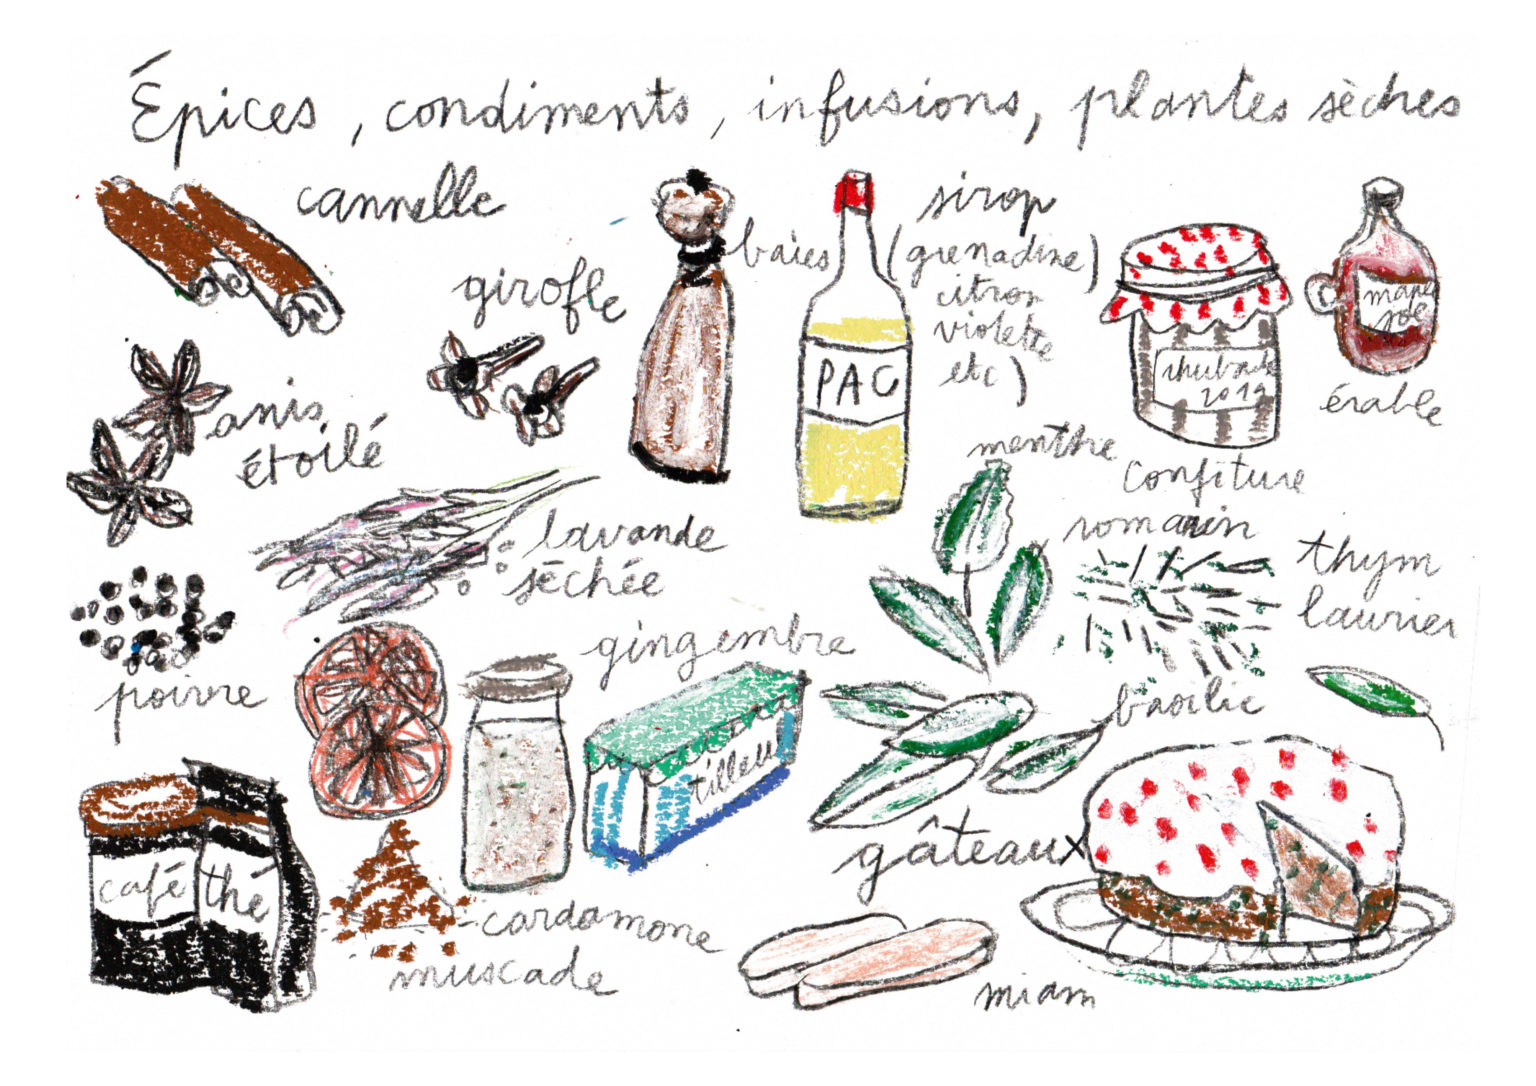 Épices, condiments, infusions, plantes sèches
cannelle
girofle
baies
sirop
(grenadine)
citron
violette
etc)
PAC
rhubarbe
2019
érable
anis
étoilé
menthe
confiture
romarin
thym
laurier
lavande
séchée
poivre
gingembre
basilic
tilleul
café
thé
gâteaux
cardamone
muscade
miam